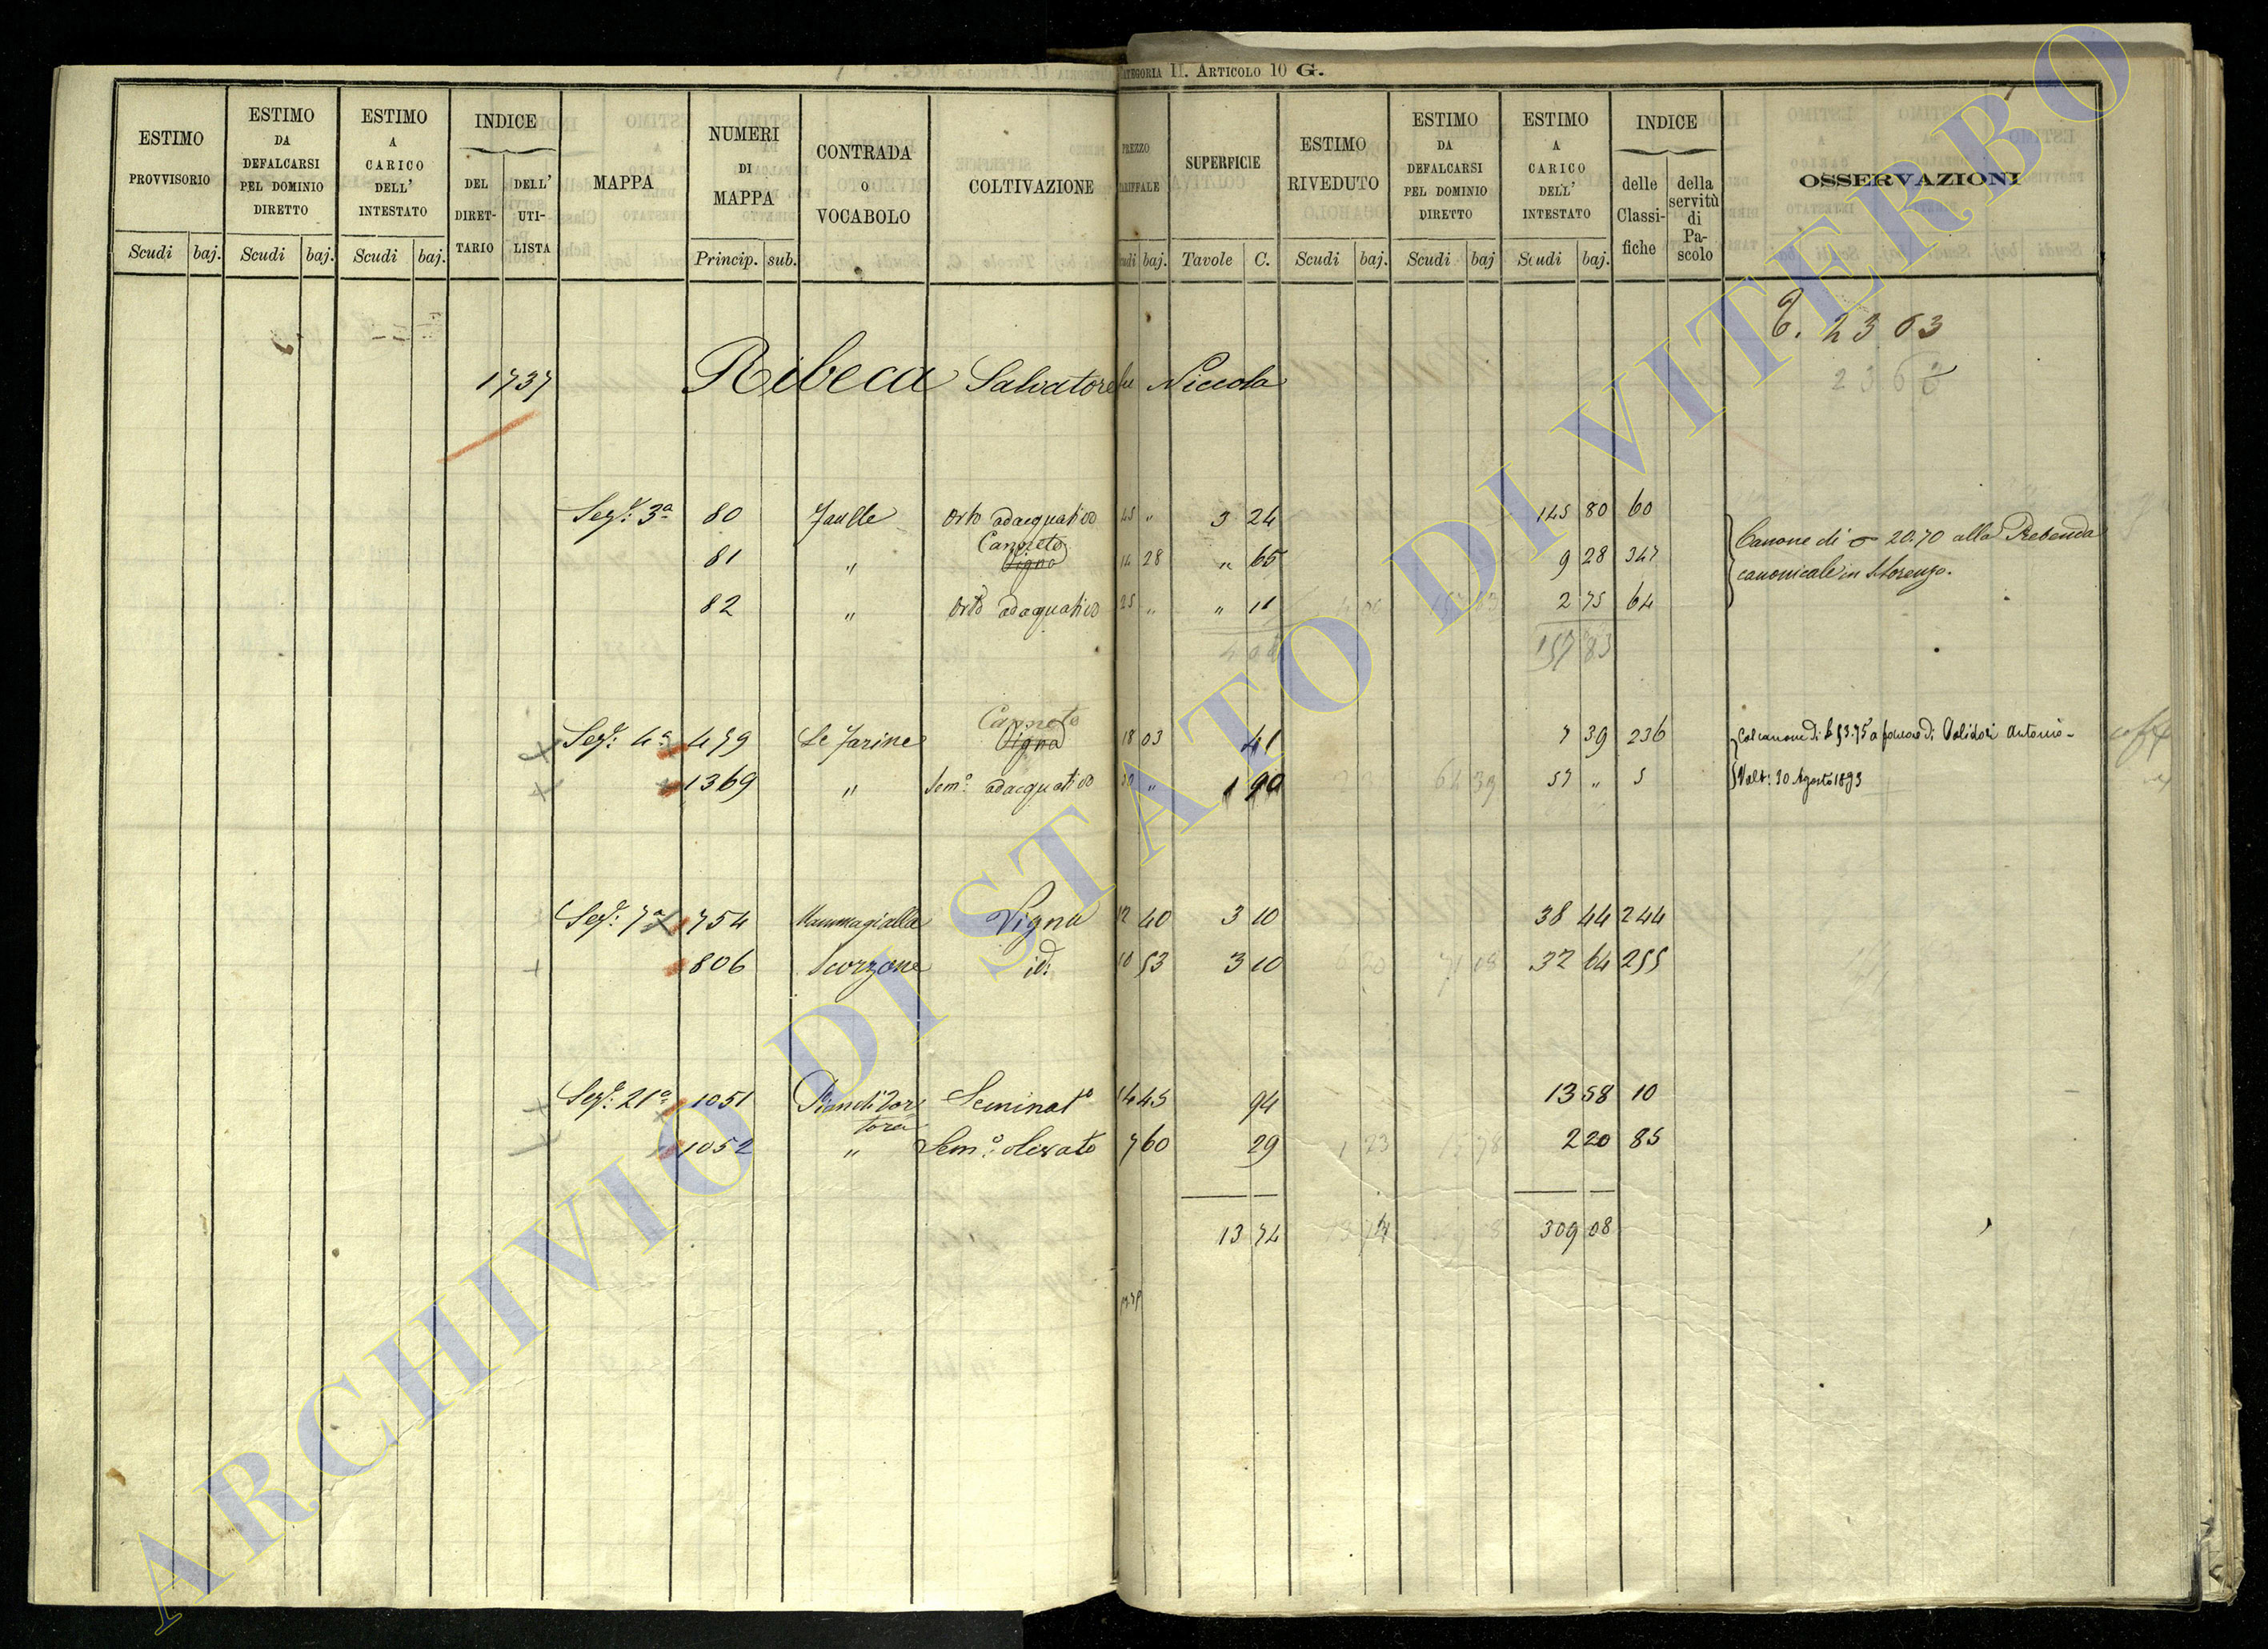 CATEGORIA II. ARTICOLO 10 G.
ESTIMO PROVVISORIO Scudi baj.
ESTIMO DA DEFALCARSI PEL DOMINIO DIRETTO Scudi baj.
ESTIMO A CARICO DELL' INTESTATO Scudi baj.
INDICE DEL DIRET-TARIO DELL' UTI-LISTA
MAPPA
NUMERI DI MAPPA Princip. sub.
CONTRADA O VOCABOLO
COLTIVAZIONE
PREZZO baj.
SUPERFICIE Tavole C.
ESTIMO RIVEDUTO Scudi baj.
ESTIMO DA DEFALCARSI PEL DOMINIO DIRETTO Scudi baj
ESTIMO A CARICO DELL' INTESTATO Scudi baj.
INDICE delle Classi-fiche della servitù di Pa-scolo
OSSERVAZIONI
2363
2363
1737 Ribeca Salvatore fu Niccola
Sez.e 3a 80 Faulle Orto adacquativo 45 " 3 24 145 80 60
81 " Canneto Vigna 14 28 " 65 9 28 347
82 " Orto adacquativo 25 " " 11 2 75 64
Canone di 20.70 alla Prebenda
canonicale in S. Lorenzo.
4 00 157 83
Sez.e 4a 479 Le Farine Canneto Vigna 18 03 41 7 39 236
1369 " Sem.o adacquativo 30 " 1 90 57 " 5
Col canone di £ 53.75 a favore di Polidori Antonio
Volt: 30 Agosto 1893
Sez.e 7a 754 Mammagialla Vigna 12 40 3 10 38 44 244
806 Scorzone id. 10 53 3 10 32 64 255
Sez.e 21a 1051 Seminat.o 14 45 94 13 58 10
1052 " Sem.o olivato 7 60 29 2 20 85
13 74 13 74 309 08
ARCHIVIO DI STATO DI VITERBO